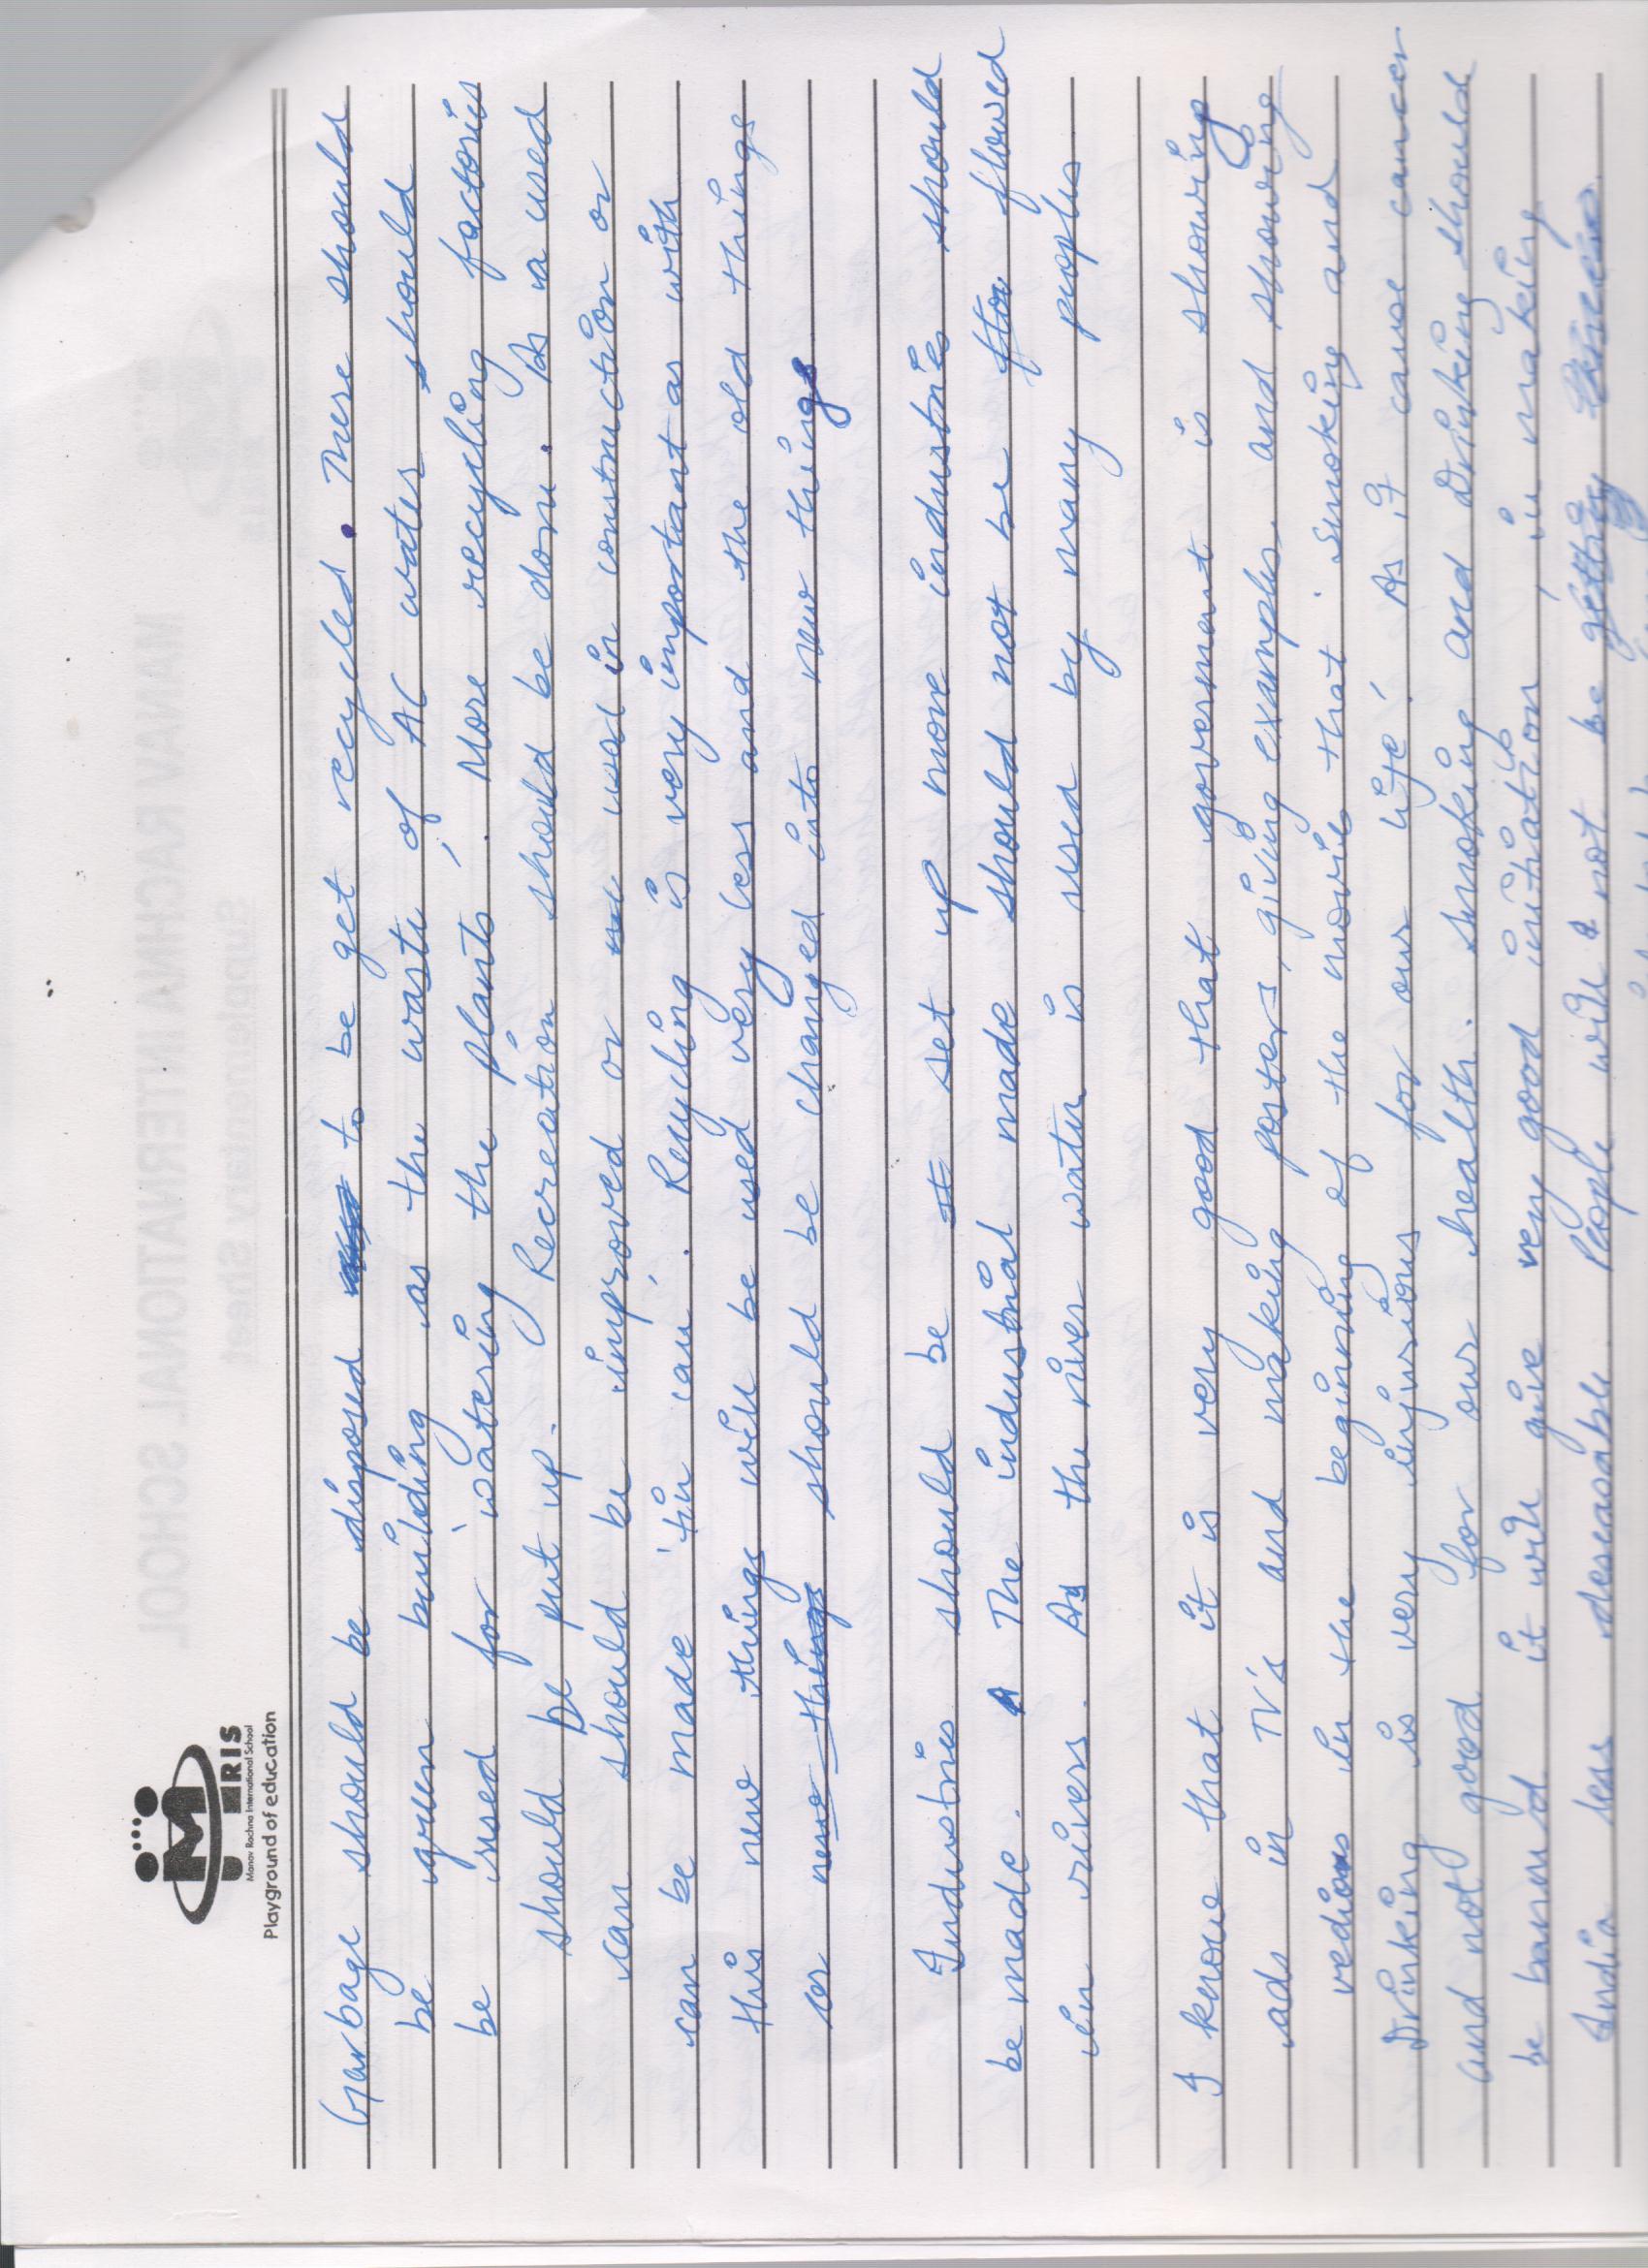 MRIS
Manav Rachna International School
Playground of education
Garbage should be disposed to be get recycled. There should
be green building as the waste of AC water should
be used for 'watering the plants'. More recycling factories
should be put up. Recreation should be done. As a used
can should be improved or used in construction or
can be made 'tin can'. Recycling is very important as with
this new things will be used very less and the old things
or new things should be changed into new things
Industries should be set up more industries should
be made. The industrial made should not be flowed
in rivers. As the river water is used by many peoples
I know that it is very good that goverment is showing
ads in TV's and making posters, giving examples. and showing
vedios in the beginning of the movies that 'smoking and
Drinking is very injurious for our life'. As it cause cancer
and not good for our health. smoking and Drinking should
be banned it will give very good initiation in making
India less deseasable. People will not be getting
MANAV RACHNA INTERNATIONAL SCHOOL
Supplementary Sheet